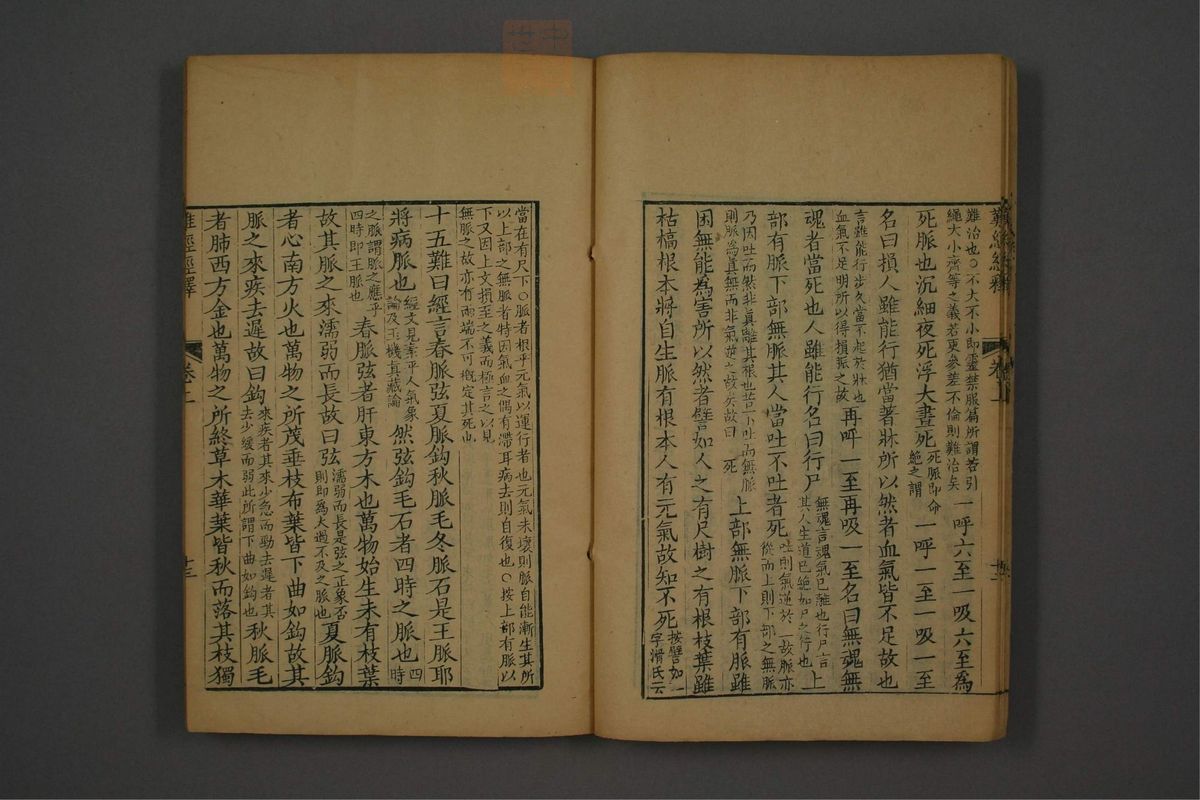 難經經釋 卷上 廿二
難治也○不大不小即靈禁服篇所謂若引
繩大小齊等之義若更參差不倫則難治矣
一呼六至一吸六至為
死脈也沉細夜死浮大晝死
死脈即命
絶之謂
一呼一至一吸一至
名曰損人雖能行猶當著牀所以然者血氣皆不足故也
言雖能行步久當不起於牀也
血氣不足明所以得損脈之故
再呼一至再吸一至名曰無魂無
魂者當死也人雖能行名曰行尸
無魂言魂氣已離也行尸言
其人生道已絶如尸之行也
上
部有脈下部無脈其人當吐不吐者死
吐則氣逆於一故脈亦
從而上則下部之無脈
乃因吐而然非真離其根也若一下吐而無脈
則脈為真無而非氣逆之故矣故曰 死
上部無脈下部有脈雖
困無能為害所以然者譬如人之有尺樹之有根枝葉雖
枯槁根本將自生脈有根本人有元氣故知不死
按譬如一
字滑氏云
當在有尺下○脈者根乎元氣以運行者也元氣未壞則脈自能漸生其所
以上部之無脈者特因氣血之偶有滯耳病去則自復也○按上部有脈以
下又因上文損至之義而極言之以見
無脈之故亦有兩端不可概定其死也
十五難曰經言春脈弦夏脈鈎秋脈毛冬脈石是王脈耶
將病脈也
經文見素平人氣象
論及玉機真藏論
然弦鈎毛石者四時之脈也
四時
之脈謂脈之應乎
四時即王脈也
春脈弦者肝東方木也萬物始生未有枝葉
故其脈之來濡弱而長故曰弦
濡弱而長是弦之正象否
則即為太過不及之脈也
夏脈鈎
者心南方火也萬物之所茂垂枝布葉皆下曲如鈎故其
脈之來疾去遲故曰鈎
來疾者其來少急而勁去遲者其
去少緩而弱此所謂下曲如鈎也
秋脈毛
者肺西方金也萬物之所終草木華葉皆秋而落其枝獨
難經經釋 卷上 廿三